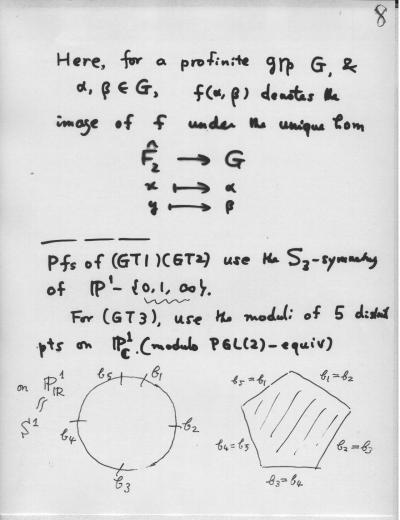 8
Here, for a profinite grp G, &
α, β ∈ G, f(α, β) denotes the
image of f under the unique hom
F̂₂ ⟶ G
x ⟼ α
y ⟼ β
Pfs of (GT1)(GT2) use the S₃-symmetry
of ℙ¹-{0, 1, ∞}.
For (GT3), use the moduli of 5 distinct
pts on ℙ¹_ℂ. (modulo PGL(2)-equiv)
on ℙ¹_ℝ
S¹
b₅ b₁
b₄ b₂
b₃
b₅=b₁ b₁=b₂
b₄=b₅ b₂=b₃
b₃=b₄